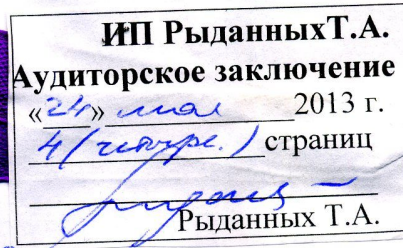 ИП РыданныхТ.А.
Аудиторское заключение
«24» мая 2013 г.
4 (четыре.) страниц
Рыданных Т.А.